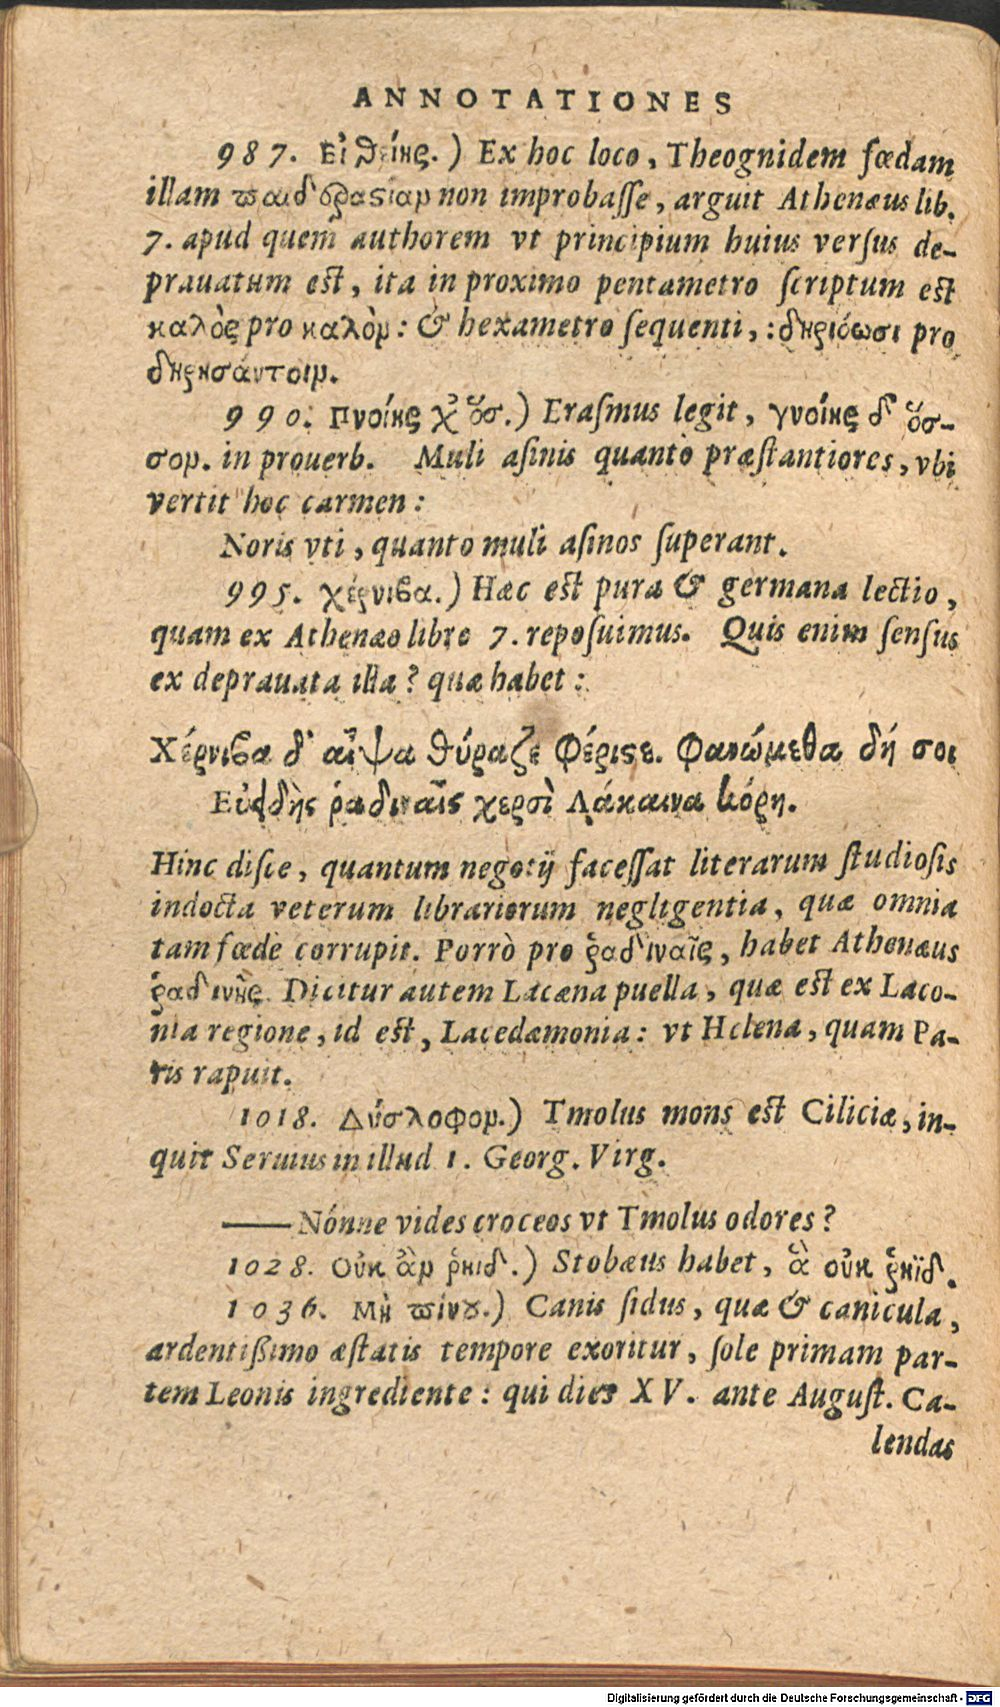 ANNOTATIONES
987. Εἰ θείης.) Ex hoc loco, Theognidem fœdam
illam παιδεραςίαν non improbaſſe, arguit Athenæus lib.
7. apud quem authorem vt principium huius verſus de-
prauatum est, ita in proximo pentametro ſcriptum est
καλὸς pro καλὸν: & hexametro ſequenti, : δηριόωσι pro
δηρησάντοιν.
990. Γνοίης χ' ὅσ.) Eraſmus legit, γνοίης δ' ὅσ-
σον. in prouerb. Muli aſinis quantò præſtantiores, vbi
vertit hoc carmen:
Noris vti, quanto muli aſinos ſuperant.
995. χέρνιβα.) Hæc est pura & germana lectio,
quam ex Athenæo libro 7. repoſuimus. Quis enim ſenſus
ex deprauata illa? quæ habet:
Χέρνιβα δ' αἶψα θύραζε φέριςε. φανώμεθα δή σοι
Εὐειδὴς ῥαδιναῖς χερσὶ Λάκαινα κόρη.
Hinc diſce, quantum negotij faceſſat literarum ſtudioſis
indocta veterum librariorum negligentia, quæ omnia
tam fœdè corrupit. Porrò pro ῥαδιναῖς, habet Athenæus
ῥαδινῆς. Dicitur autem Lacæna puella, quæ est ex Laco-
nia regione, id est, Lacedæmonia: vt Helena, quam Pa-
ris rapuit.
1018. Δύσλοφον.) Tmolus mons est Ciliciæ, in-
quit Seruius in illud 1. Georg. Virg.
—Nónne vides croceos vt Tmolus odores?
1028. Οὐκ ἂν ῥηιδ.) Stobæus habet, ἃ οὐκ ῥηϊδ.
1036. Μὴ πίνου.) Canis ſidus, quæ & canicula,
ardentißimo æſtatis tempore exoritur, ſole primam par-
tem Leonis ingrediente: qui dies XV. ante Auguſt. Ca-
lendas
Digitalisierung gefördert durch die Deutsche Forschungsgemeinschaft - DFG